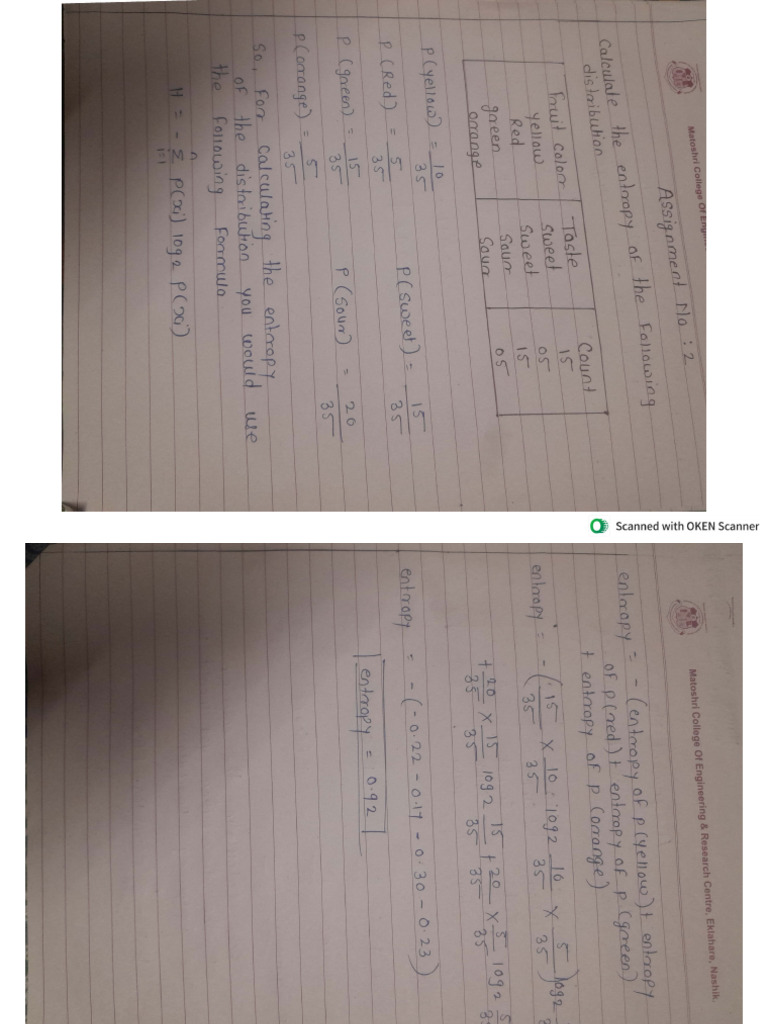 Matoshri College Of Engin
Assignment No : 2
Calculate the entropy of the following
distribution
Fruit color Taste Count
yellow sweet 15
Red sweet 05
green sour 15
orange sour 05
P(yellow) = 10/35 P(sweet) = 15/35
P(Red) = 5/35
P(green) = 15/35 P(sour) = 20/35
P(orange) = 5/35
So, for calculating the entropy
of the distribution you would use
the following formula
H = - n Σ i=1 P(xi) log2 P(xi)
Scanned with OKEN Scanner
Matoshri College Of Engineering & Research Centre, Eklahare, Nashik.
entropy = - (entropy of p(yellow) + entropy
of p(red) + entropy of p(green)
+ entropy of p (orange)
entropy = - (15/35 × 10/35 log2 10/35 × 5/35) log2
+ 20/35 × 15/35 log2 15/35 + 20/35 × 5/35 log2
entropy = - (- 0.22 - 0.17 - 0.30 - 0.23)
entropy = 0.92